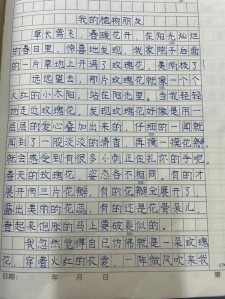 我的植物朋友
草长莺飞，春暖花开，在阳光灿烂
的春日里，惊喜地发现，我家院子后面
的一片草地上开满了玫瑰花，美丽极了
远远望去，那片玫瑰花就像一个个
火红的小太阳，站在阳光里。当我轻轻
地走近玫瑰花，发现玫瑰花好像是用一
层层的爱心叠加出来的，仔细的一闻就
闻到了一股淡淡的清香，再摸一摸花瓣
就会感受到有很多小刺正在扎你的手呢。
春天的玫瑰花，姿态各不相同。有的才
展开两三片花瓣，有的花瓣全展开了，
露出美的的花蕊，有的还是花骨朵儿，
看起来饱胀的马上要破裂似的。
我忽然觉得自己仿佛就是一朵玫瑰
花，穿着火红的衣裳，一阵微风吹来我
日期：
年
月
日
第